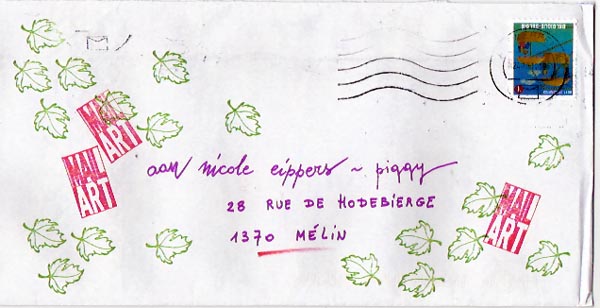 BELGIQUE-BELGIË
MAIL
ART
MAIL
ART
aan nicole eippers ~ piggy
28 RUE DE HODEBIERGE
1370 MÉLIN
MAIL
ART